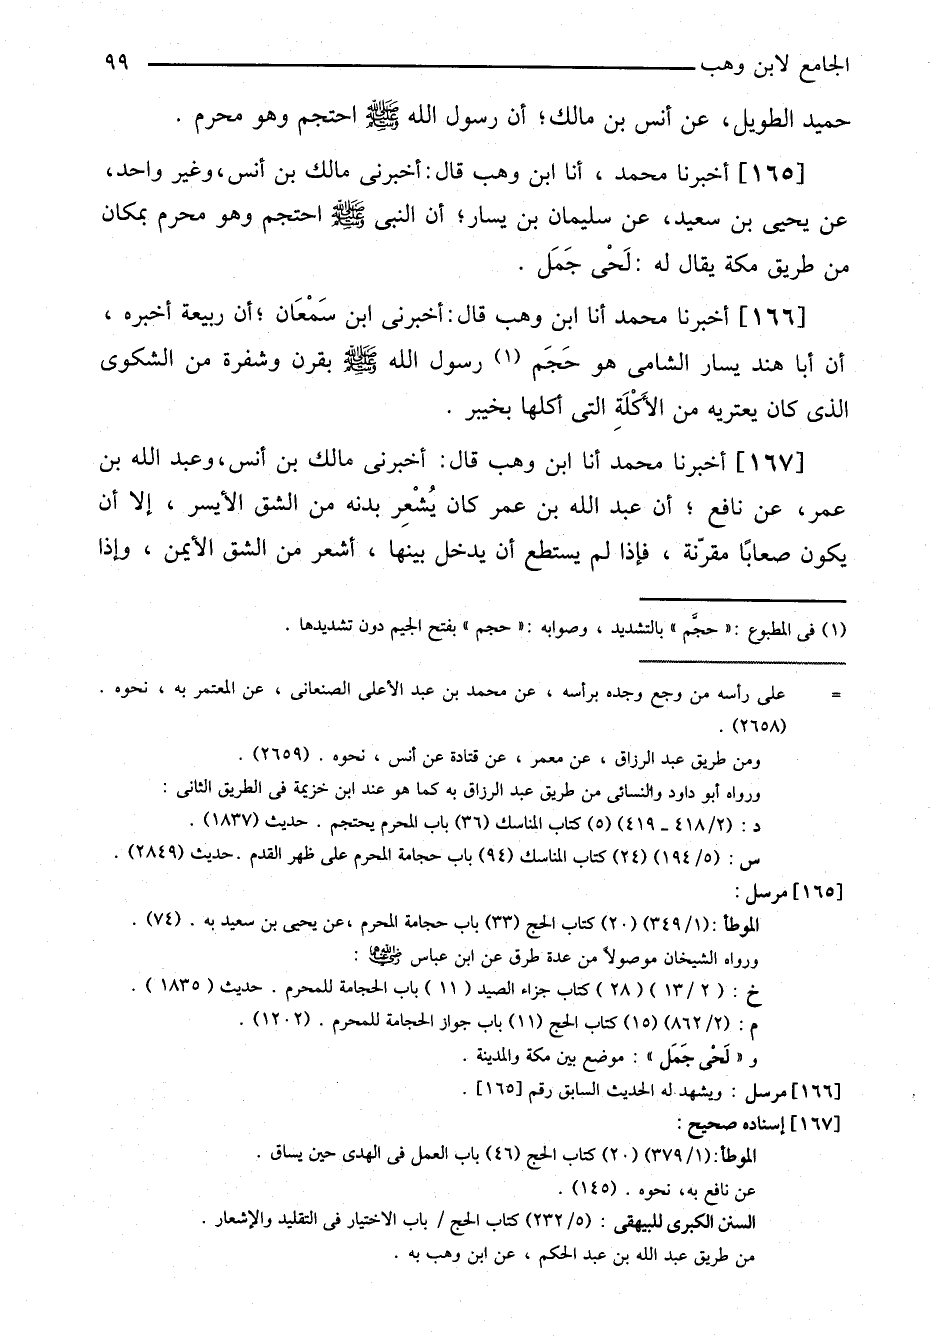 الجامع لابن وهب ــــــــــــــــــــــــــــــــ ٩٩
حميد الطويل، عن أنس بن مالك؛ أن رسول الله ﷺ احتجم وهو محرم .
[١٦٥] أخبرنا محمد ، أنا ابن وهب قال: أخبرنى مالك بن أنس، وغير واحد،
عن يحيى بن سعيد، عن سليمان بن يسار؛ أن النبى ﷺ احتجم وهو محرم بمكان
من طريق مكة يقال له : لَحْى جَمَل .
[١٦٦] أخبرنا محمد أنا ابن وهب قال: أخبرنى ابن سَمْعَان ؛ أن ربيعة أخبره ،
أن أبا هند يسار الشامى هو حَجَم (١) رسول الله ﷺ بقرن وشفرة من الشكوى
الذى كان يعتريه من الأَكْلَةِ التى أكلها بخيبر .
[١٦٧] أخبرنا محمد أنا ابن وهب قال: أخبرنى مالك بن أنس، وعبد الله بن
عمر، عن نافع ؛ أن عبد الله بن عمر كان يُشْعِر بدنه من الشق الأيسر ، إلا أن
يكون صعابًا مقرّنة ، فإذا لم يستطع أن يدخل بينها ، أشعر من الشق الأيمن ، وإذا
(١) فى المطبوع : « حجَّم » بالتشديد ، وصوابه : « حجم » بفتح الجيم دون تشديدها .
= على رأسه من وجع وجده برأسه ، عن محمد بن عبد الأعلى الصنعانى ، عن المعتمر به ، نحوه .
(٢٦٥٨) .
ومن طريق عبد الرزاق ، عن معمر ، عن قتادة عن أنس ، نحوه . (٢٦٥٩) .
ورواه أبو داود والنسائى من طريق عبد الرزاق به كما هو عند ابن خزيمة فى الطريق الثانى :
د : (٢/ ٤١٨ ـ ٤١٩) (٥) كتاب المناسك (٣٦) باب المحرم يحتجم . حديث (١٨٣٧) .
س : (٥/ ١٩٤) (٢٤) كتاب المناسك (٩٤) باب حجامة المحرم على ظهر القدم . حديث (٢٨٤٩) .
[١٦٥] مرسل :
الموطأ : (١/ ٣٤٩) (٢٠) كتاب الحج (٣٣) باب حجامة المحرم ، عن يحيى بن سعيد به . (٧٤) .
ورواه الشيخان موصولاً من عدة طرق عن ابن عباس رضي الله عنهما :
خ : ( ٢ / ١٣ ) ( ٢٨ ) كتاب جزاء الصيد ( ١١ ) باب الحجامة للمحرم . حديث ( ١٨٣٥ ) .
م : (٢/ ٨٦٢) (١٥) كتاب الحج (١١) باب جواز الحجامة للمحرم . (١٢٠٢) .
و « لَحْى جَمَل » : موضع بين مكة والمدينة .
[١٦٦] مرسل : ويشهد له الحديث السابق رقم [١٦٥] .
[١٦٧] إسناده صحيح :
الموطأ: (١/ ٣٧٩) (٢٠) كتاب الحج (٤٦) باب العمل فى الهدى حين يساق .
عن نافع به، نحوه . (١٤٥) .
السنن الكبرى للبيهقى : (٥/ ٢٣٢) كتاب الحج / باب الاختيار فى التقليد والإشعار .
من طريق عبد الله بن عبد الحكم ، عن ابن وهب به .